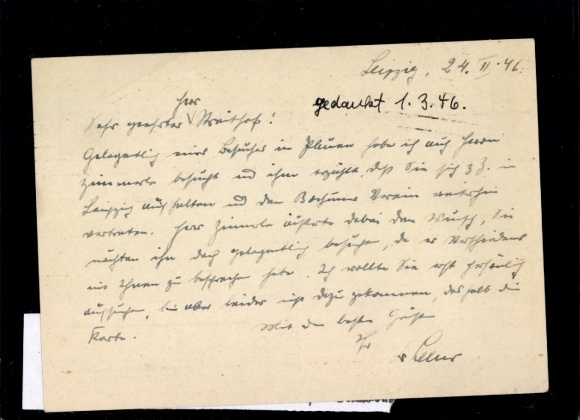 Leipzig, 24. II. 46.
gedankt 1. 3. 46.
Herr
Sehr geehrter Weithofs!
Gelegentlich eines Besuches in Plauen habe ich auch Herrn
Zimmerle besucht und ihm erzählt daß Sie sich z.Z. in
Leipzig aufhalten und den Bochumer Verein weiterhin
vertreten. Herr Zimmerle äußerte dabei den Wunsch, Sie
möchten ihn doch gelegentlich besuchen, da er Verschiedenes
mit Ihnen zu besprechen habe. Ich wollte Sie erst persönlich
aufsuchen, bin aber leider nicht dazu gekommen, deshalb die
Karte.
Mit den besten Grüßen
Ihr